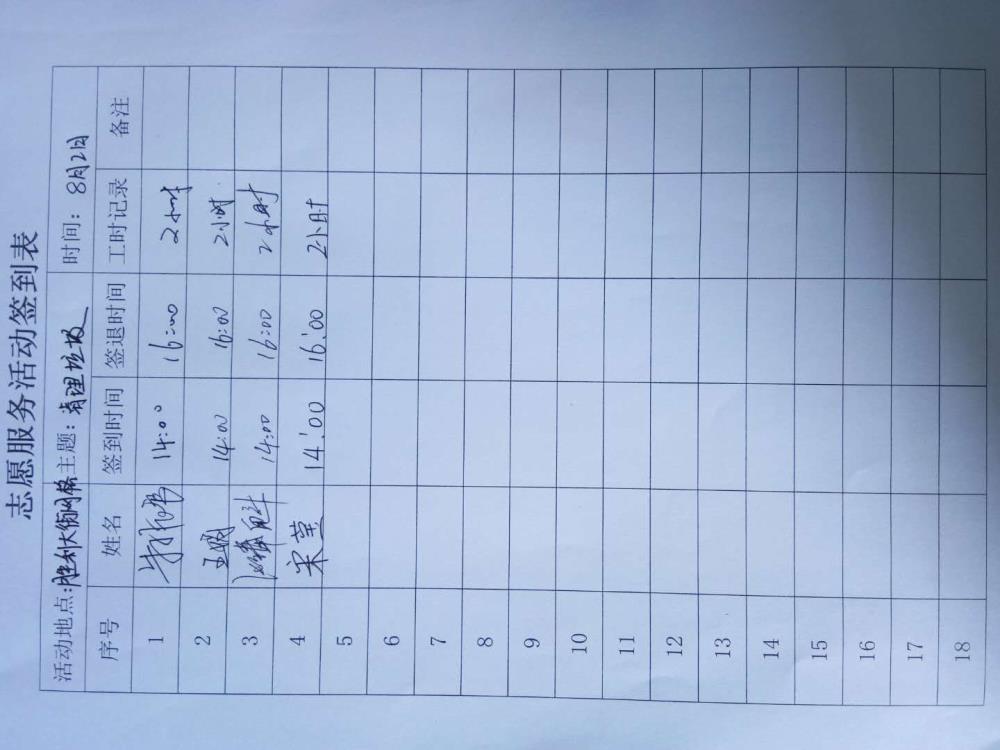 志愿服务活动签到表
活动地点:胜利大街网格 主题:清理垃圾 时间: 8月2日
序号 姓名 签到时间 签退时间 工时记录 备注
1 14:00 16:00 2小时
2 王明 14:00 16:00 2小时
3 14:00 16:00 2小时
4 宋莹 14:00 16:00 2小时
5
6
7
8
9
10
11
12
13
14
15
16
17
18